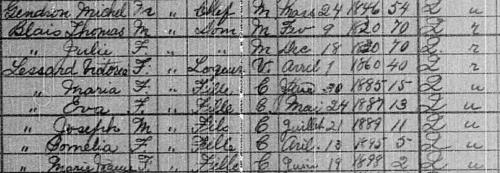 Gendron Michel M " Chef M Mars 24 1846 54 Q u
Blais Thomas M " Dom M Fev 9 1820 70 Q r
" Julie F " " M Dec 18 1820 70 Q r
Lessard F " Logeur V Avril 1 1860 40 Q r
" Maria F " Fille C 30 1885 15 Q u
" Eva F " Fille C Mai 24 1887 13 Q u
" Joseph M " Fils C Juillet 21 1889 11 Q u
" F " Fille C Avril 13 1895 5 Q u
" Marie F " Fille C Juin 19 1898 2 Q u